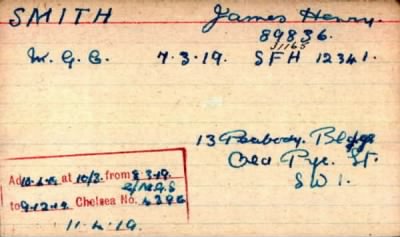 SMITH James Henry.
89836.
31165
M. G. C. 7.3.19. SFH 12341.
13 Peabody. Bldgs
Old Pye. St.
SW1.
Ad at 10/3. from 8.3.19.
to 9.12.19. Chelsea No. 4396
11.4.19.